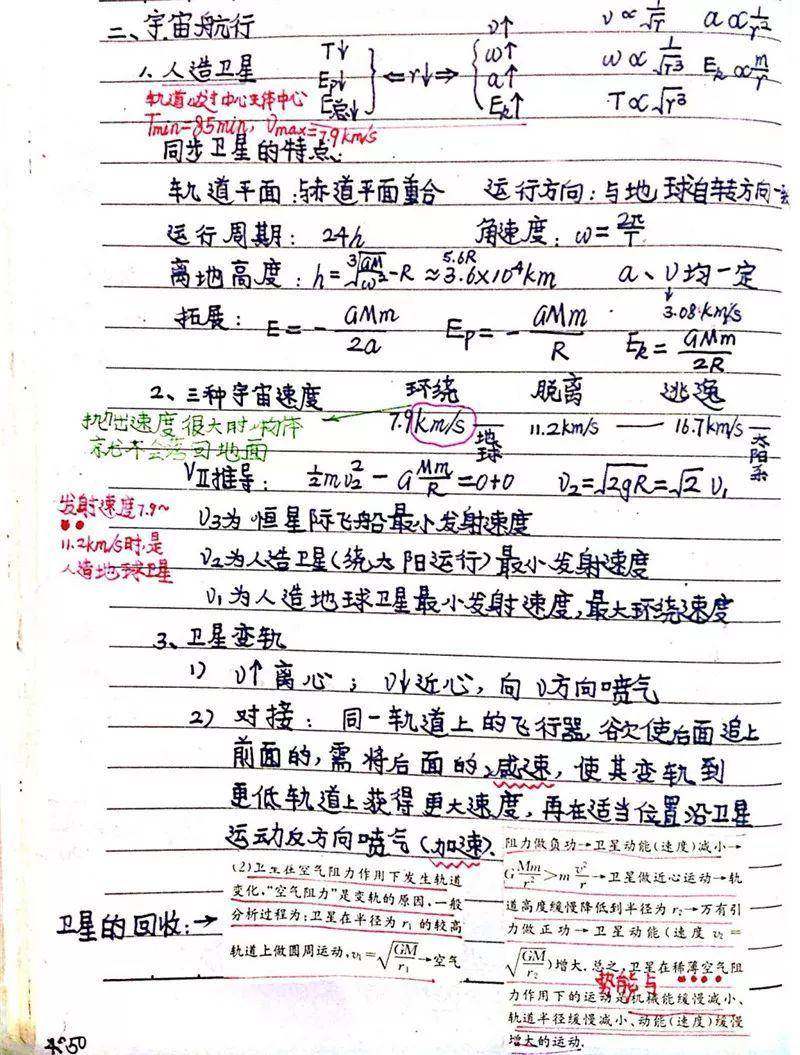 二、宇宙航行
1. 人造卫星
轨道必过中心天体中心
Tmin=85min, υmax=7.9km/s
T↓
Ep↓
E总↓
⇐r↓⇒
υ↑
ω↑
a↑
Ek↑
υ∝1/√r a∝1/r²
ω∝1/√r³ Ek∝m/r
T∝√r³
同步卫星的特点:
轨道平面:与赤道平面重合 运行方向:与地球自转方向一致
运行周期: 24h 角速度: ω=2π/T
离地高度: h=∛(GM/ω²)-R≈3.6×10⁴km a、υ均一定
5.6R
3.08km/s
拓展: E=-GMm/2a Ep=-GMm/R Ek=GMm/2R
2、三种宇宙速度 环绕 脱离 逃逸
7.9km/s 地球 11.2km/s — 16.7km/s 太阳系
抛出速度很大时,物体
就不会落回地面
VⅡ推导: ½mυ₂²-GMm/R=0+0 υ₂=√2gR=√2υ₁
发射速度7.9~
11.2km/s时,是
人造地球卫星
υ3为恒星际飞船最小发射速度
υ₂为人造卫星(绕太阳运行)最小发射速度
υ₁为人造地球卫星最小发射速度,最大环绕速度
3、卫星变轨
1) υ↑离心; υ↓近心,向υ方向喷气
2) 对接: 同一轨道上的飞行器,欲使后面追上
前面的,需将后面的减速,使其变轨到
更低轨道上获得更大速度,再在适当位置沿卫星
运动反方向喷气(加速).
卫星的回收:→
(2)卫星在空气阻力作用下发生轨道
变化,"空气阻力"是变轨的原因,一般
分析过程为:卫星在半径为r₁的较高
轨道上做圆周运动,v₁=√(GM/r₁)→空气
阻力做负功→卫星动能(速度)减小→
G Mm/r²>m v²/r→卫星做近心运动→轨
道高度缓慢降低到半径为r₂→万有引
力做正功→卫星动能(速度v₂=
√(GM/r₂))增大.总之,卫星在稀薄空气阻
热能与
力作用下的运动是机械能缓慢减小、
轨道半径缓慢减小、动能(速度)缓慢
增大的运动.